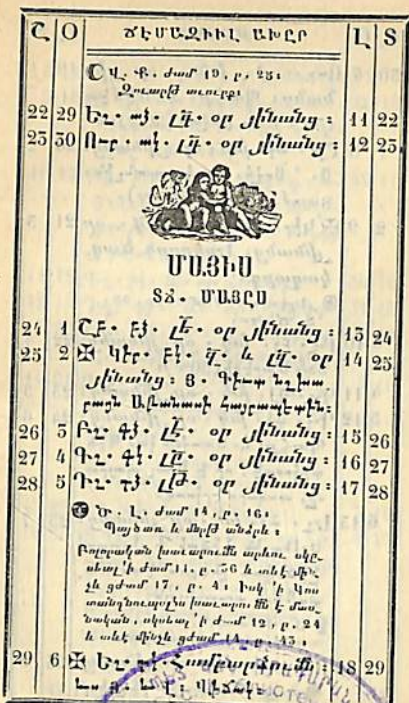 Շ Օ ՃԷՄԱԶԻԻԼ ԱԽԸՐ Լ Տ
Վ. Ք. ժամ 19, ր. 28։
Զուարթ աւուրք։
22 29 Եշ. այ. ԼԳ. օր յինանց։ 11 22
23 30 Ուր. ակ. ԼԴ. օր յինանց։ 12 23
ՄԱՅԻՍ
ՏՃ. ՄԱՅԸՍ
24 1 Շբ. բձ. ԼԵ. օր յինանց։ 13 24
25 2 ✠ Կիր. բկ. Է. և ԼԶ. օր 14 25
յինանց։ Յ. Գիւտ նշխա
րացն Աթանասի հայրապետին։
26 3 Բշ. գձ. ԼԷ. օր յինանց։ 15 26
27 4 Գշ. գկ. ԼԸ. օր յինանց։ 16 27
28 5 Դշ. դձ. ԼԹ. օր յինանց։ 17 28
Ծ. Լ. ժամ 14, ր. 16։
Պայծառ և մերթ անձրև։
Բոլորական խաւարումն արևու սկը֊
սեալ ՚ի ժամ 11, ր. 36 և տևէ մին֊
չև ցժամ 17, ր. 4։ Իսկ ՚ի Կոս
տանդնուպօլիս խաւարումն է մաս֊
նական, սկսեալ ՚ի ժամ 12, ր. 24
և տևէ մինչև ցժամ 14, ր. 43։
29 6 ✠ Եշ. դկ. Համբարձումն 18 29
վիճակ։